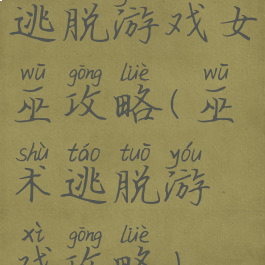 逃脱游戏女
wū gōng lüè wū
巫攻略(巫
shù táo tuō yóu
术逃脱游
xì gōng lüè
戏攻略)